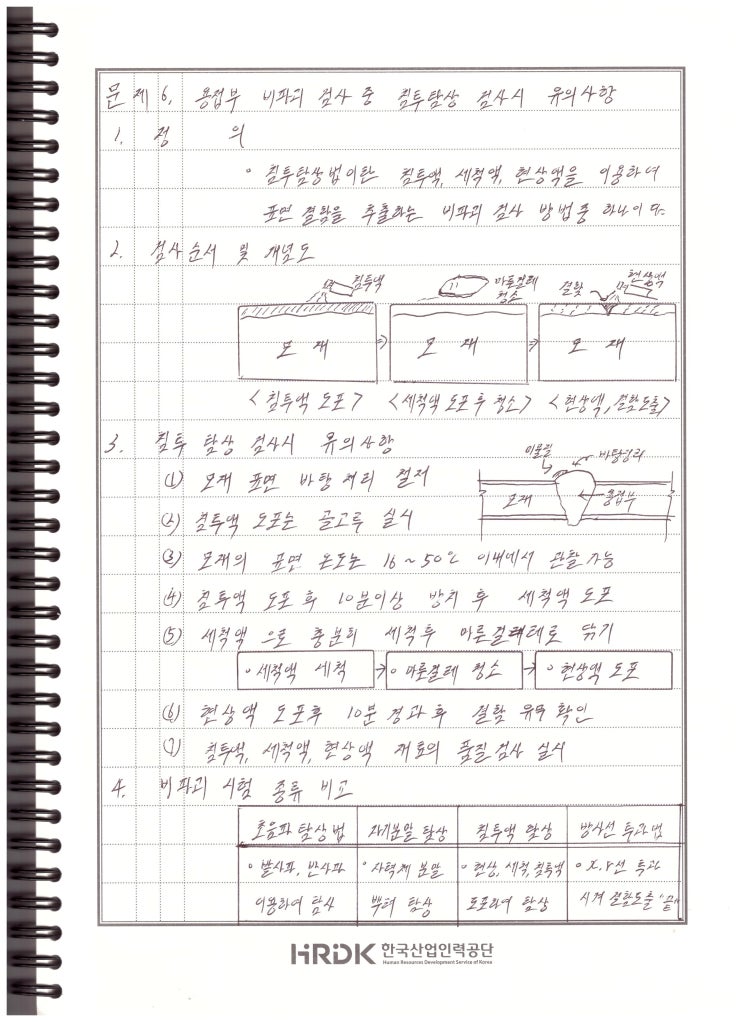 문제 6. 용접부 비파괴 검사 중 침투탐상 검사시 유의사항
1. 정 의
• 침투탐상법이란 침투액, 세척액, 현상액을 이용하여
표면 결함을 추출하는 비파괴 검사 방법중 하나이다.
2. 검사순서 및 개념도
침투액 마른걸레 청소 결함 현상액
모 재 → 모 재 → 모 재
<침투액 도포> <세척액 도포 후 청소> <현상액, 결함도출>
3. 침투 탐상 검사시 유의사항
이물질 바탕정리
(1) 모재 표면 바탕 처리 철저
모재 용접부
(2) 침투액 도포는 골고루 실시
(3) 모재의 표면 온도는 16~50℃ 이내에서 관찰 가능
(4) 침투액 도포 후 10분이상 방치 후 세척액 도포
(5) 세척액 으로 충분히 세척후 마른걸레로 닦기
• 세척액 세척 → • 마른걸레 청소 → • 현상액 도포
(6) 현상액 도포후 10분 경과 후 결함 유무 확인
(7) 침투액, 세척액, 현상액 재료의 품질검사 실시
4. 비파괴 시험 종류 비교
초음파 탐상법 자기분말 탐상 침투액 탐상 방사선 투과법
• 발사파, 반사파 • 자력체 분말 • 현상, 세척, 침투액 • X, γ선 투과
이용하여 탐사 뿌려 탐상 도포하여 탐상 시켜 결함도출 "끝"
HRDK 한국산업인력공단
Human Resources Development Service of Korea